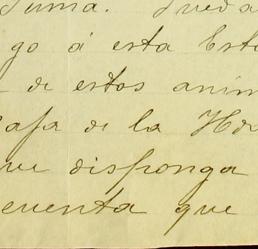 Suma. Queda
go á esta Esta
de estos anim
Caja de la Hda
ue disponga
cuenta que